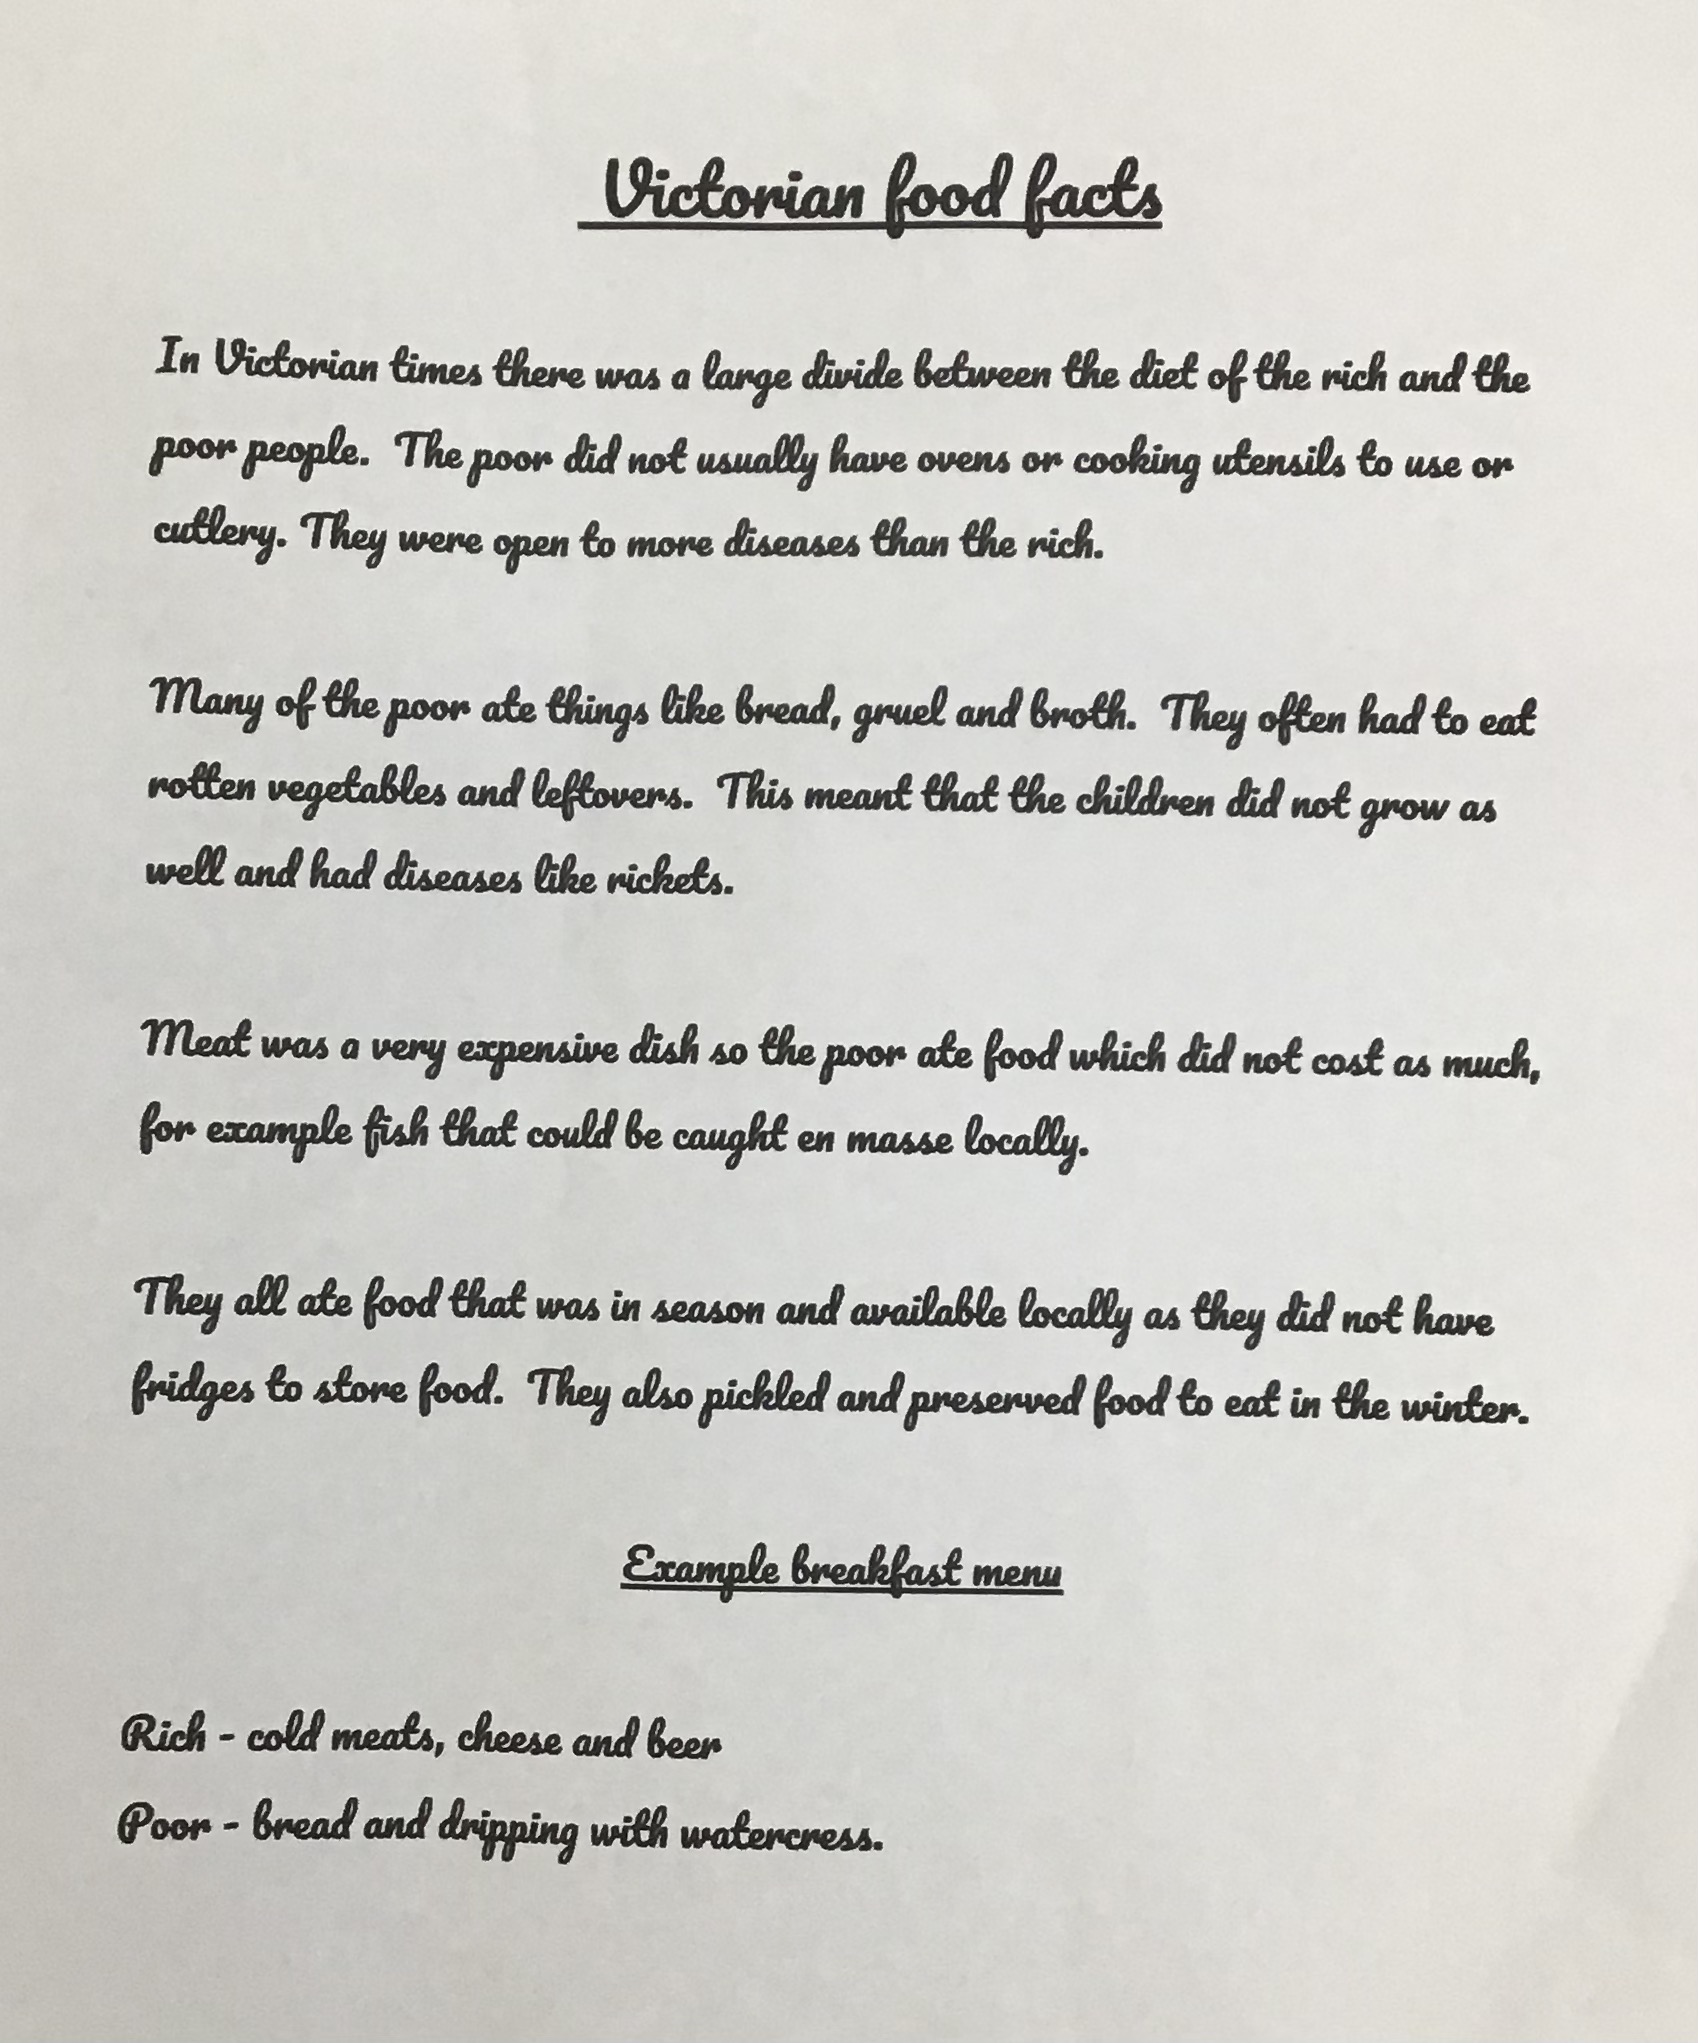 Victorian food facts
In Victorian times there was a large divide between the diet of the rich and the
poor people. The poor did not usually have ovens or cooking utensils to use or
cutlery. They were open to more diseases than the rich.
Many of the poor ate things like bread, gruel and broth. They often had to eat
rotten vegetables and leftovers. This meant that the children did not grow as
well and had diseases like rickets.
Meat was a very expensive dish so the poor ate food which did not cost as much,
for example fish that could be caught en masse locally.
They all ate food that was in season and available locally as they did not have
fridges to store food. They also pickled and preserved food to eat in the winter.
Example breakfast menu
Rich - cold meats, cheese and beer
Poor - bread and dripping with watercress.